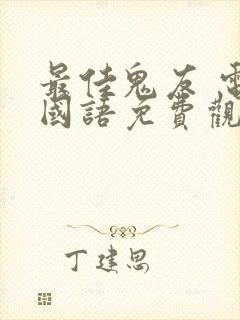 最佳鬼友 電
國語免費觀
丁建思